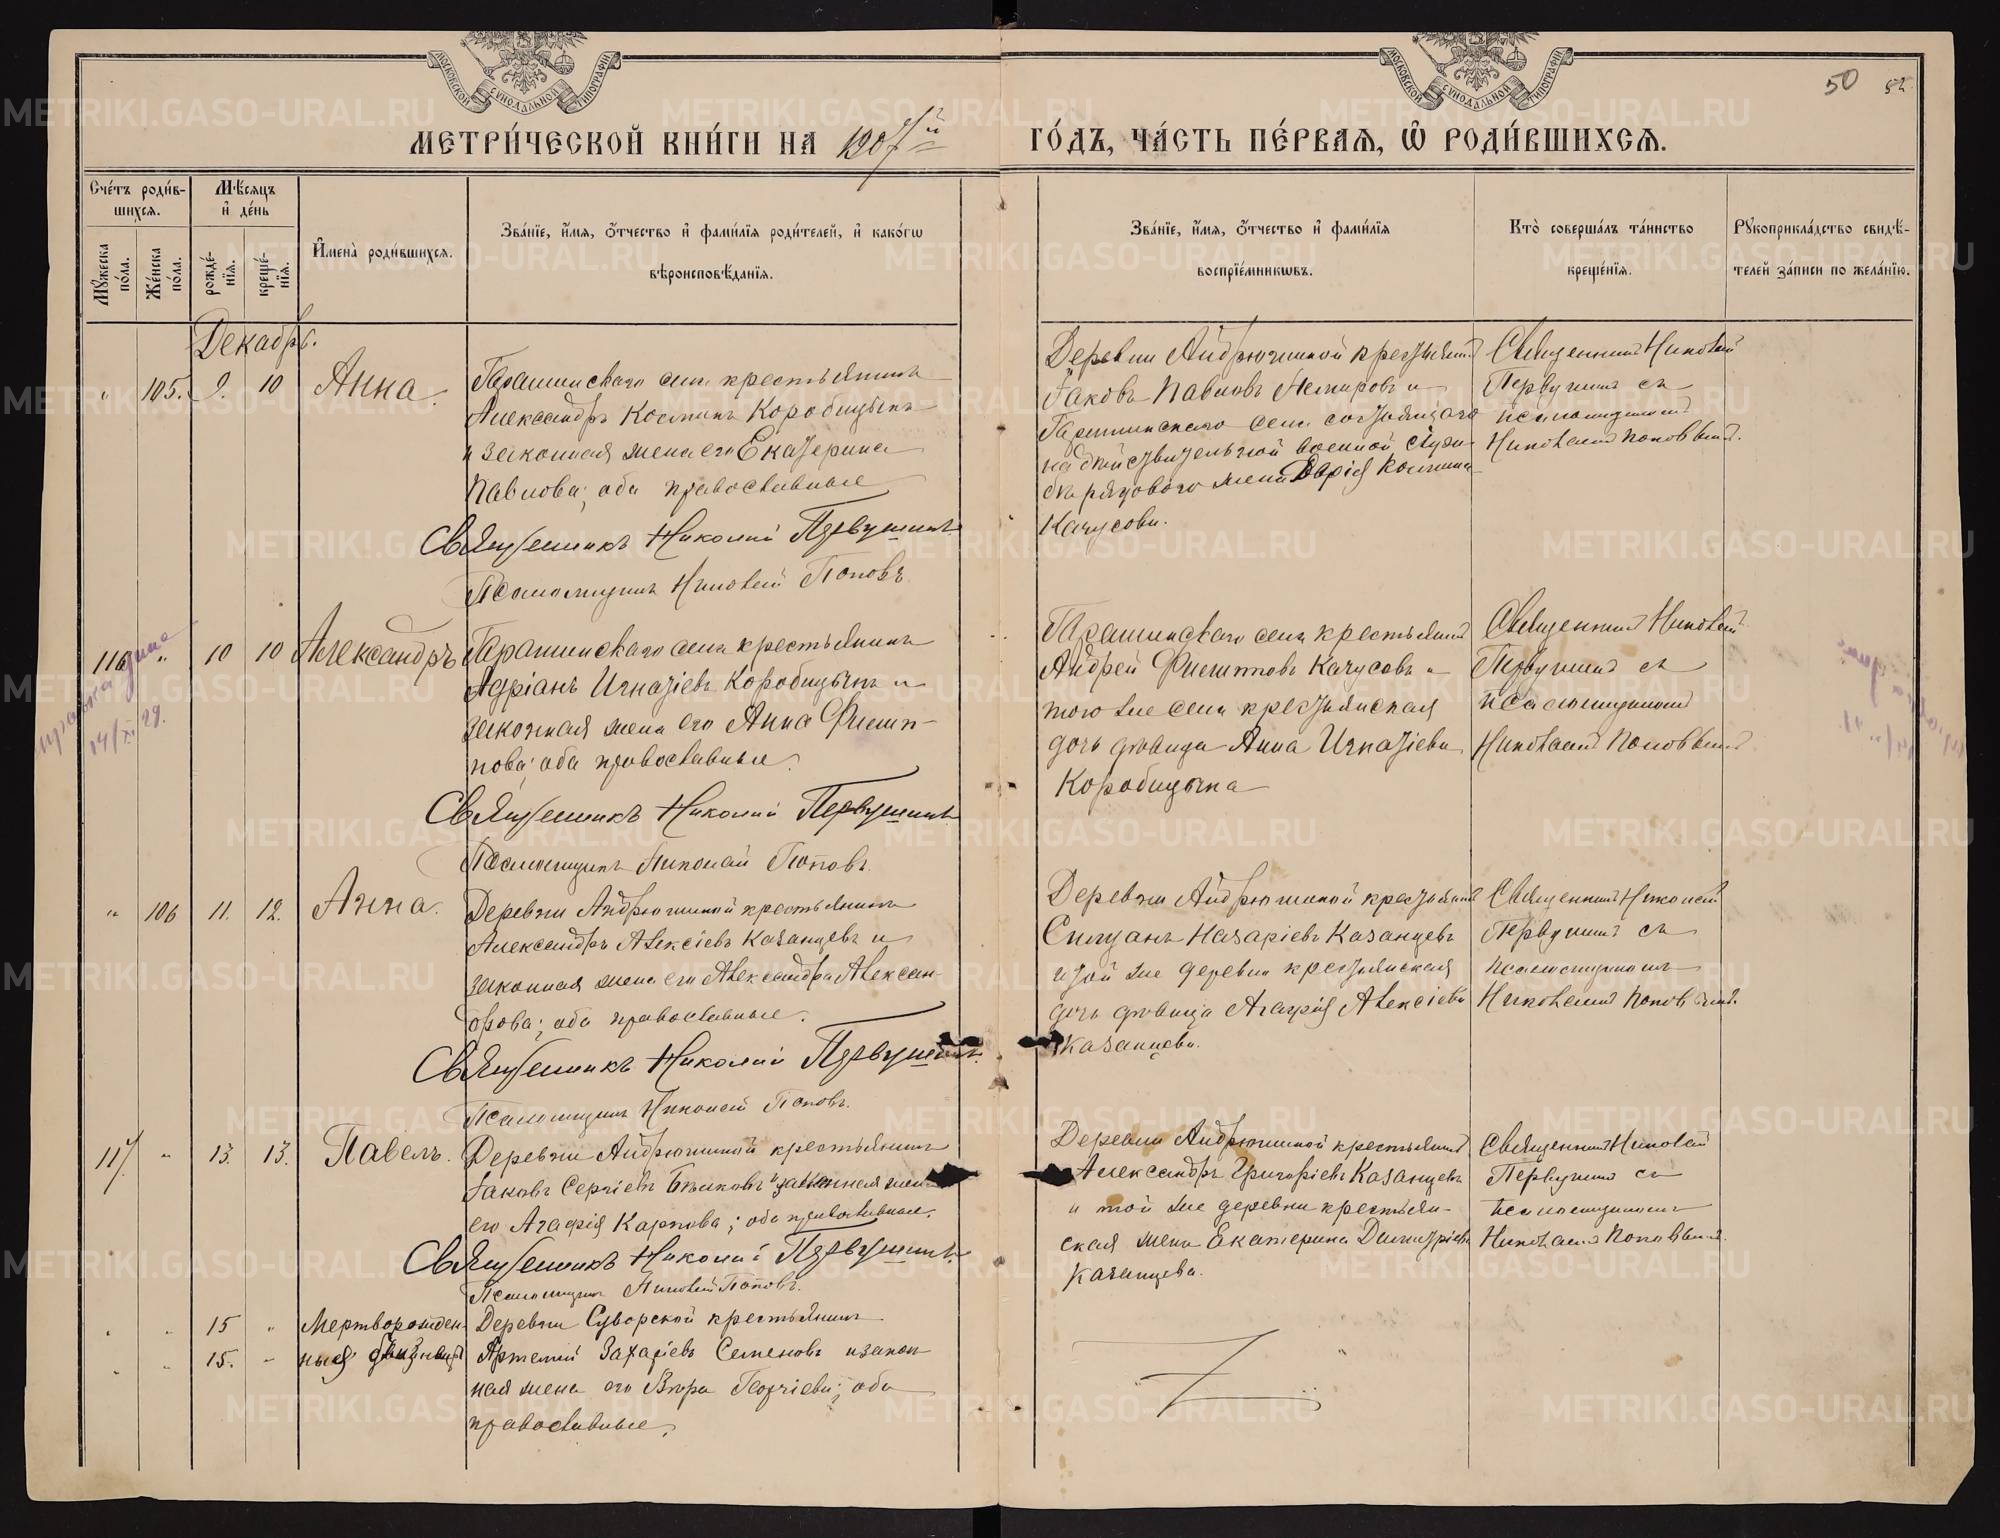 МОСКОВСКОЙ СѴНОДАЛЬНОЙ ТИПОГРАФІИ
МОСКОВСКОЙ СѴНОДАЛЬНОЙ ТИПОГРАФІИ
50 52
МЕТРИ́ЧЕСКОЙ КНИ́ГИ НА 1907й ГО́ДЪ, ЧА́СТЬ ПЕ́РВАѦ, Ѡ РОДИ́ВШИХСѦ.
Счетъ роди́в-
шихсѧ.
Мужеска по́ла.
Же́нска по́ла.
Мѣсѧцъ
и҆ де́нь
рожде́-
нїѧ.
креще́-
нїѧ.
И҆мена̀ роди́вшихсѧ.
Зва́нїе, и҆́мѧ, ѻ҆́тчество и҆ фами́лїѧ роди́телей, и҆ како́гѡ
вѣроисповѣ́данїѧ.
Зва́нїе, и҆́мѧ, ѻ҆́тчество и҆ фами́лїѧ
воспрїе́мникѡвъ.
Кто̀ соверша́лъ та́инство
креще́нїѧ.
Рꙋкоприкла́дство свидѣ́-
телей за́писи по жела́нїю.
Декабрь.
" 105. 9. 10 Анна.
Гарашинскаго села крестьянинъ
Александръ Косминъ Коробицынъ
и законная жена его Екатерина
Павлова; оба православные
Священникъ Николай Первушинъ
Псаломщикъ Николай Поповъ
Деревни Андрюшиной крестьянинъ
Іаковъ Павловъ и
Гарашинскаго села состоящаго
на дѣйствительной военной служ-
бѣ рядового жена Дарія Космина
Качусова.
Священникъ Николай
Первушинъ съ
псаломщикомъ
Николаемъ Поповымъ.
116 " 10 10 Александръ
14/XI 29.
Гарашинскаго села крестьянинъ
Адріанъ Игнатіевъ Коробицынъ и
законная жена его Анна Филип-
пова; оба православные.
Священникъ Николай Первушинъ
Псаломщикъ Николай Поповъ.
Гарашинскаго села крестьянинъ
Андрей Филиповъ Качусовъ и
того же села крестьянская
дочь дѣвица Анна Игнатіева
Коробицына
Священникъ Николай
Первушинъ съ
псаломщикомъ
Николаемъ Поповымъ
" 106 11. 12. Анна.
Деревни Андрюшиной крестьянинъ
Александръ Алексіевъ Казанцевъ и
законная жена его Александра Алексан-
дрова; оба православные.
Священникъ Николай Первушинъ.
Псаломщикъ Николай Поповъ.
Деревни Андрюшиной крестьянинъ
Силуанъ Назаріевъ Казанцевъ
и той же деревни крестьянская
дочь дѣвица Агафія Алексіева
Казанцева.
Священникъ Николай
Первушинъ съ
псаломщикомъ
Николаемъ Поповымъ.
117. " 13. 13. Павелъ.
Деревни Андрюшиной крестьянинъ
Іаковъ Сергіевъ Быковъ и законная жена
его Агафія Карпова; оба православные.
Священникъ Николай Первушинъ.
Псаломщикъ Николай Поповъ.
Деревни Андрюшиной крестьянинъ
Александръ Григоріевъ Казанцевъ
и той же деревни крестьян-
ская жена Екатерина Димитріева
Казанцева.
Священникъ Николай
Первушинъ съ
псаломщикомъ
Николаемъ Поповымъ.
" " 15 " Мертворожден-
" " 15. " ныя
Деревни Суворской крестьянинъ
Артемій Захаріевъ Семеновъ и закон-
ная жена его Вѣра Георгіева; оба
православные.